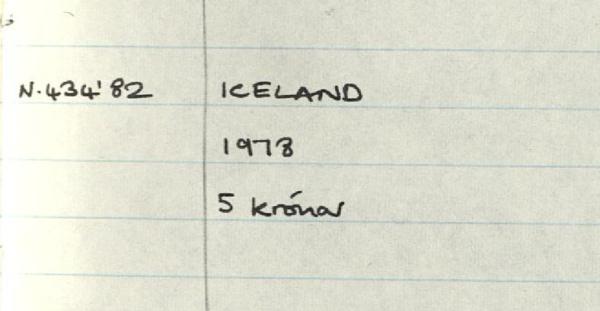 N.434'82 ICELAND
1978
5 krónur